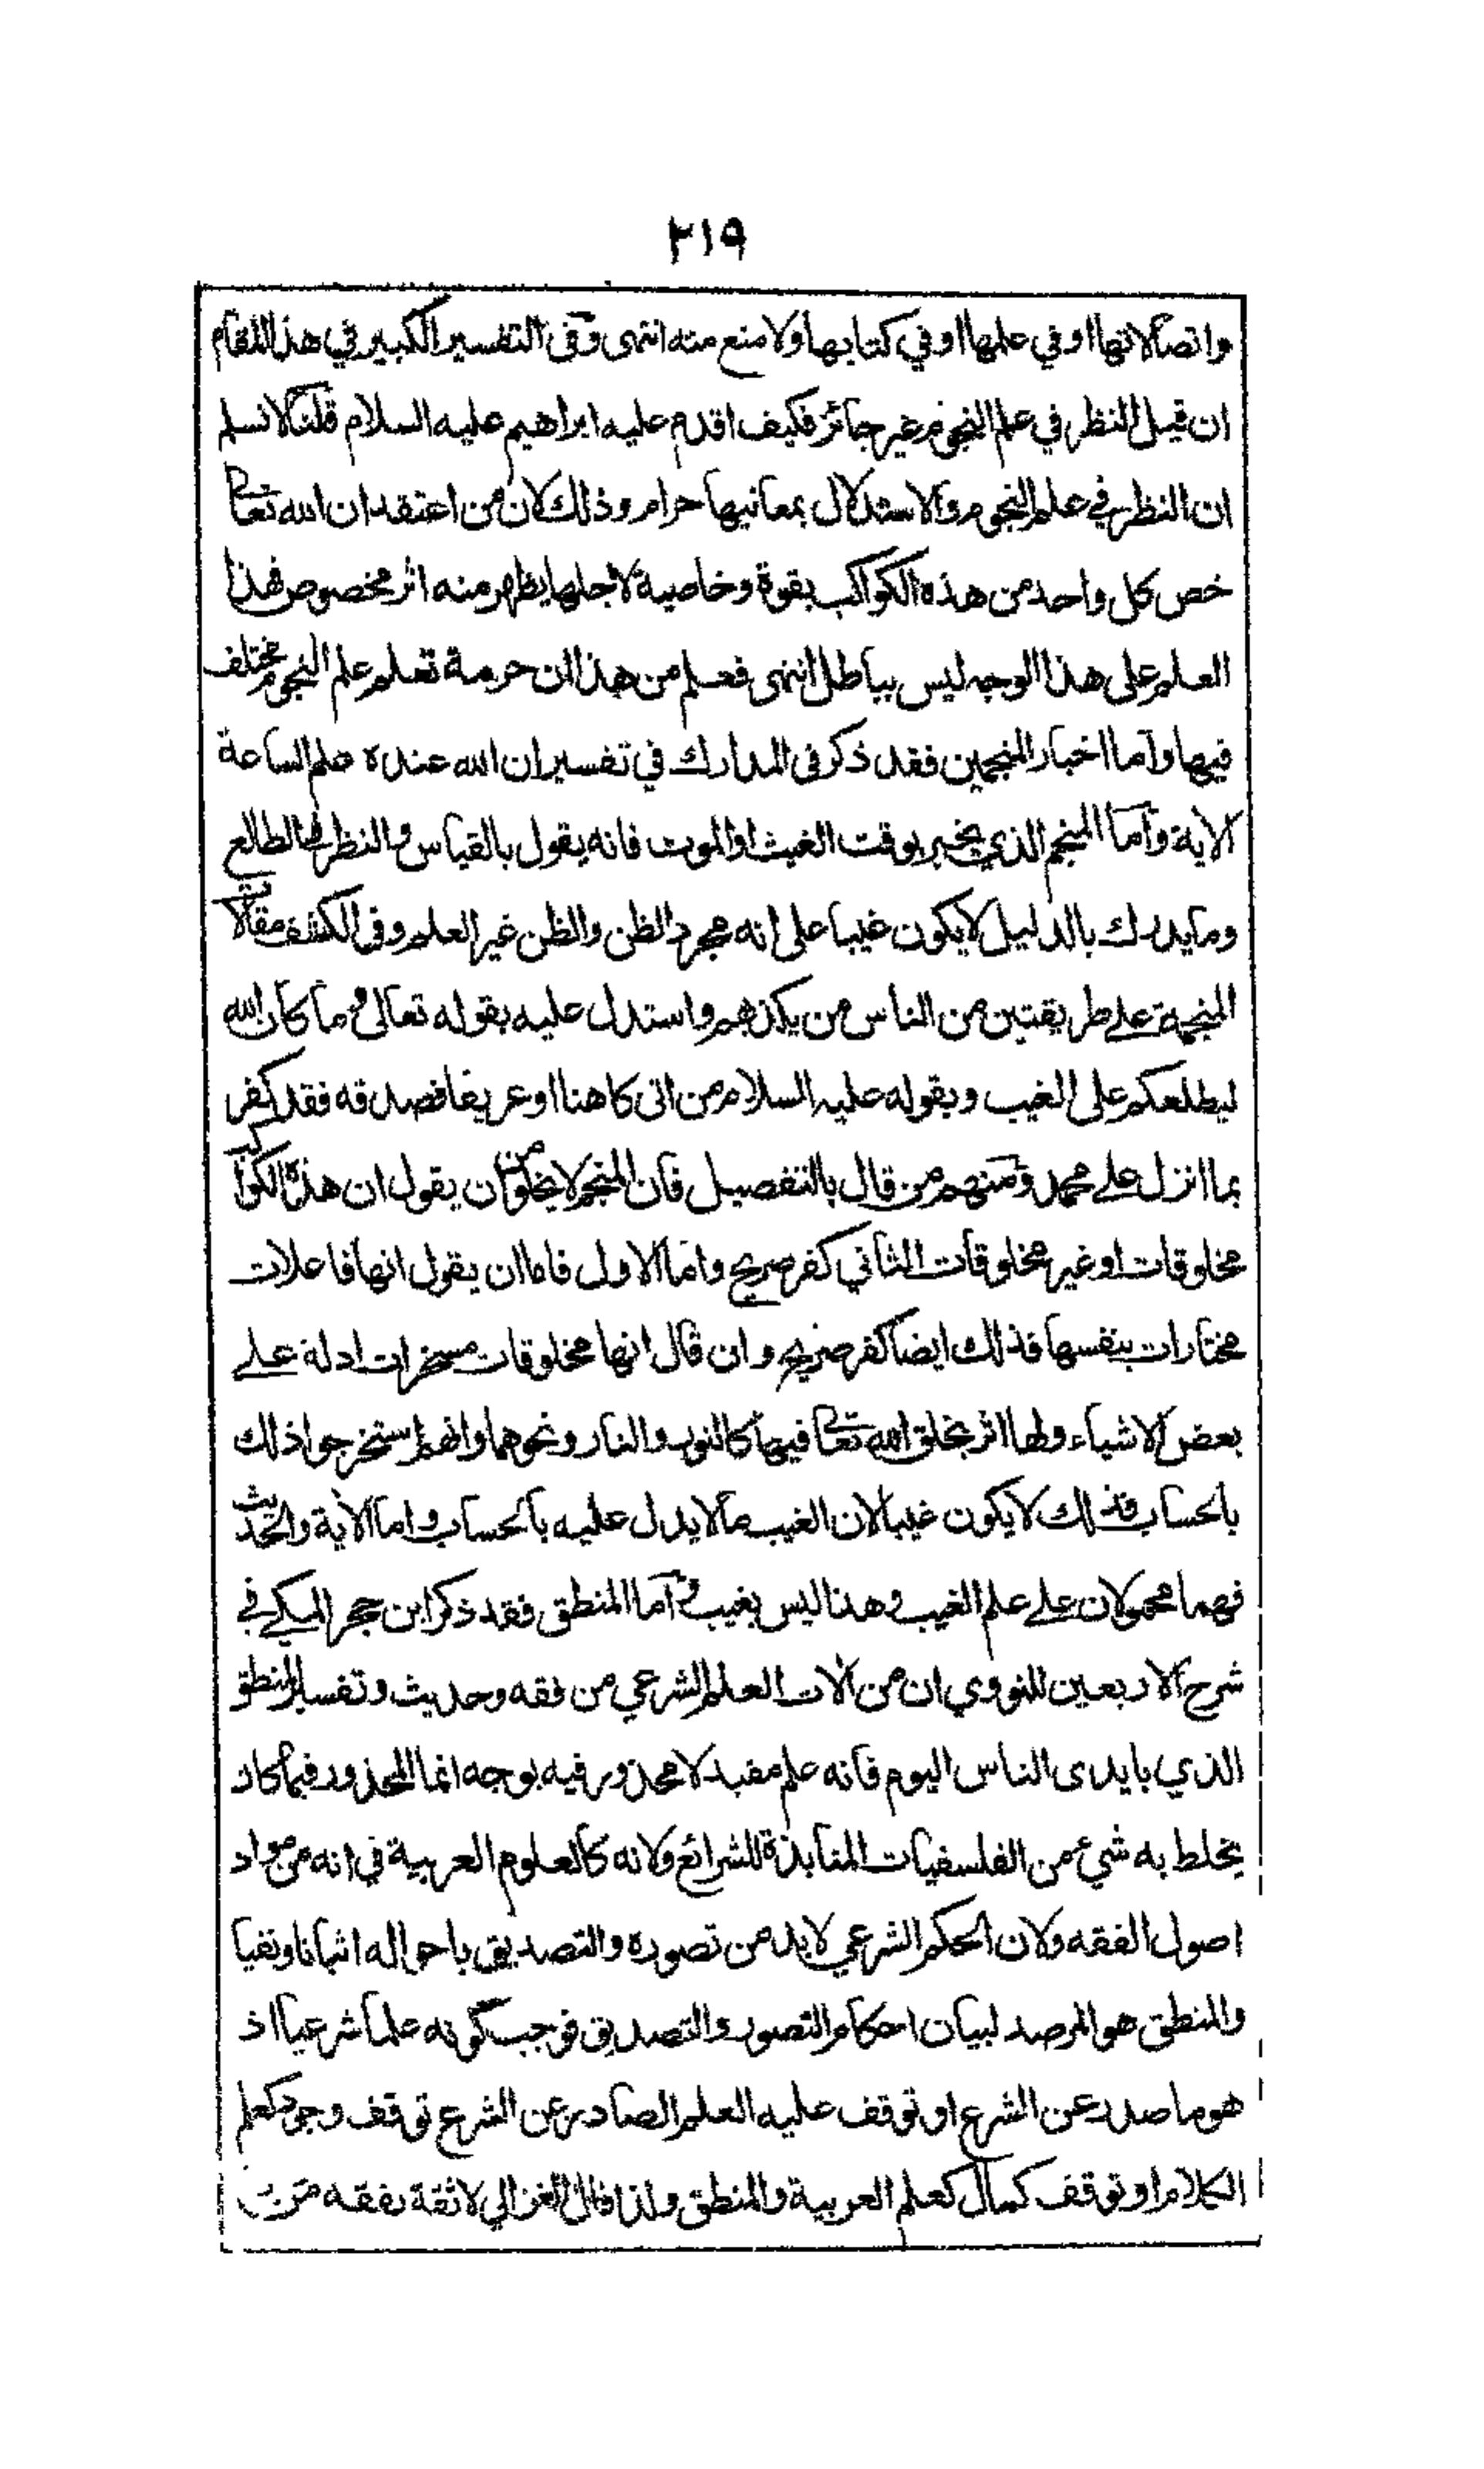 ٢١٩
واتصالاتها او في علمها او في كتابها ولا منع منه انتهى وفى التفسير الكبير في هذا المقام
ان قيل النظر في علم النجوم غير جائز فكيف اقدم عليه ابراهيم عليه السلام قلنا لا نسلم
ان النظر في علم النجوم والاستدلال بمعانيها حرام وذلك لان من اعتقد ان الله تعالى
خص كل واحد من هذه الكواكب بقوة وخاصية لاجلها يظهر منه اثر مخصوص فهذا
العلم على هذا الوجه ليس بباطل انتهى فعلم من هذا ان حرمة تعلم علم النجوم مختلف
فيها واما اخبار المنجمين فقد ذكر فى المدارك في تفسير ان الله عنده علم الساعة
الاية واما المنجم الذي يخبر بوقت الغيث او الموت فانه يقول بالقياس والنظر فى الطالع
وما يدرك بالدليل لا يكون غيبا على انه مجرد الظن والظن غير العلم وفى الكشف مقالات
المنجمة على طريقتين من الناس من يكذبهم واستدل عليه بقوله تعالى وما كان الله
ليطلعكم على الغيب وبقوله عليه السلام من اتى كاهنا او عريفا فصدقه فقد كفر
بما انزل على محمد ومنهم من قال بالتفصيل فان المنجم لا يخلو من ان يقول ان هذه الكواكب
مخلوقات او غير مخلوقات الثاني كفر صريح واما الاول فاما ان يقول انها فاعلات
مختارات بنفسها فذلك ايضا كفر صريح وان قال انها مخلوقات مسخرات ادلة على
بعض الاشياء ولها اثر بخلق الله تعالى فيها كالنور والنار ونحوهما وانهم استخرجوا ذلك
بالحساب فذلك لا يكون غيبا لان الغيب ما لا يدل عليه بالحساب واما الاية والحديث
فهما محمولان على علم الغيب وهذا ليس بغيب واما المنطق فقد ذكر ابن حجر المكي في
شرح الاربعين للنووي ان من الات العلم الشرعي من فقه وحديث وتفسير المنطق
الذي بايدى الناس اليوم فانه علم مفيد لا محذور فيه بوجه انما المحذور فيما كان
يخلط به شيء من الفلسفيات المنابذة للشرائع ولانه كالعلوم العربية في انه من مواد
اصول الفقه ولان الحكم الشرعي لا بد من تصوره والتصديق باحواله اثباتا ونفيا
والمنطق هو المرصد لبيان احكام التصور والتصديق فوجب كونه علما شرعيا اذ
هو ما صدر عن الشرع او توقف عليه العلم الصادر عن الشرع توقف وجود كعلم
الكلام او توقف كمال كعلم العربية والمنطق ولذا قال الغزالي لا ثقة بفقه من